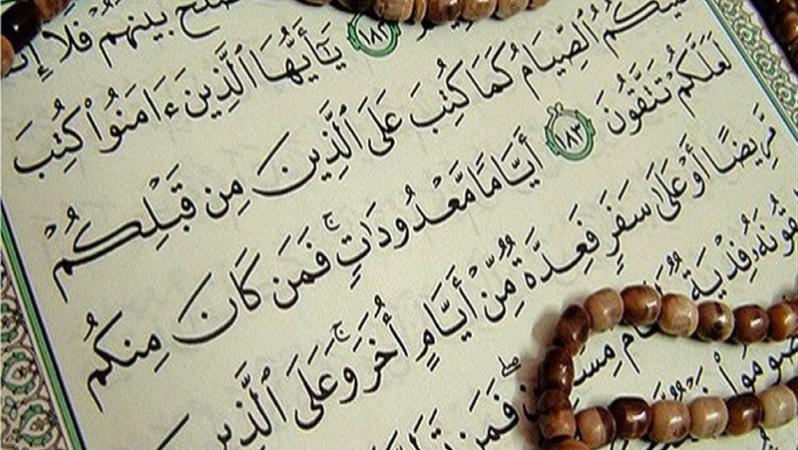 بَيْنَهُمْ فَلَا
١٨٢ يَٰٓأَيُّهَا ٱلَّذِينَ ءَامَنُوا۟ كُتِبَ
ٱلصِّيَامُ كَمَا كُتِبَ عَلَى ٱلَّذِينَ مِن قَبْلِكُمْ
لَعَلَّكُمْ تَتَّقُونَ ١٨٣ أَيَّامًا مَّعْدُودَٰتٍ ۚ فَمَن كَانَ مِنكُم
مَّرِيضًا أَوْ عَلَىٰ سَفَرٍ فَعِدَّةٌ مِّنْ أَيَّامٍ أُخَرَ ۚ وَعَلَى ٱلَّذِينَ
فِدْيَةٌ فَمَن